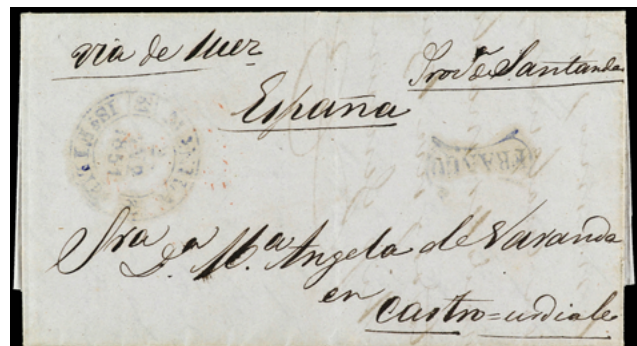 via de Suez
Prov.ª de Santander
España
FRANCO
1854
Sra D.ª M.ª Angela de Varanda
en
Castro=urdiales